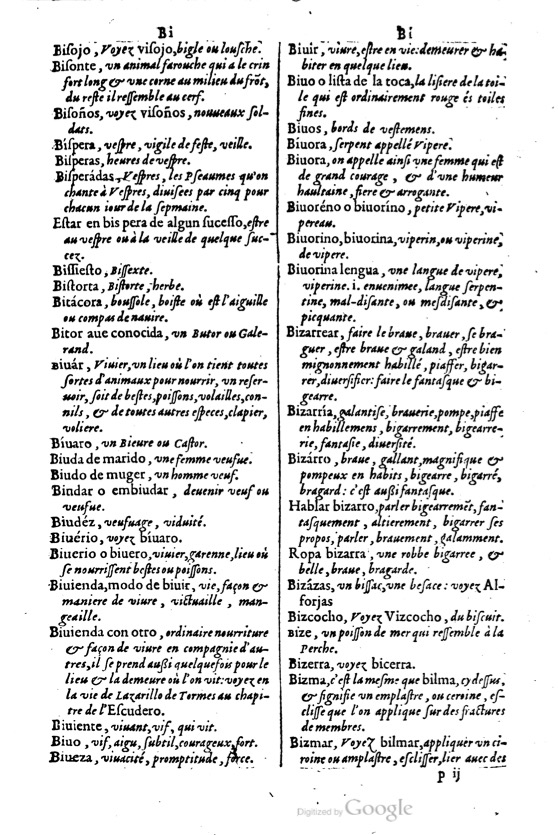 Bi
Bisojo, Voyez visojo, bigle ou lousche.
Bisonte, vn animal farouche qui a le crin
fort long & vne corne au milieu du frõt,
du reste il ressemble au cerf.
Bisoños, voyez visoños, nouueaux sol-
dats.
Bíspera, vespre, vigile de feste, veille.
Bísperas, heures de vespre.
Bisperádas, Vespres, les Pseaumes qu'on
chante à Vespres, diuisees par cinq pour
chacun iour de la sepmaine.
Estar en bispera de algun sucesso, estre
au vespre ou à la veille de quelque suc-
cez.
Bissiesto, Bissexte.
Bistorta, Bistorte, herbe.
Bitácora, boussole, boiste où est l'aiguille
ou compas de nauire.
Bitor aue conocida, vn Butor ou Gale-
rand.
Biuár, Viuier, vn lieu où l'on tient toutes
sortes d'animaux pour nourrir, vn reser-
uoir, soit de bestes, poissons, volailles, con-
nils, & de toutes autres especes, clapier,
voliere.
Bíuaro, vn Bieure ou Castor.
Biuda de marido, vne femme veufue.
Biudo de muger, vn homme veuf.
Bindar o embiudar, deuenir veuf ou
veufue.
Biudéz, veufuage, viduité.
Biuério, voyez bíuaro.
Biuerio o biuero, viuier, garenne, lieu où
se nourrissent bestes ou poissons.
Biuienda, modo de biuir, vie, façon &
maniere de viure, victuaille, man-
geaille.
Biuienda con otro, ordinaire nourriture
& façon de viure en compagnie d'au-
tres, il se prend aussi quelquefois pour le
lieu & la demeure où l'on vit: voyez en
la vie de Lazarillo de Tormes au chapi-
tre de l'Escudero.
Biuiente, viuant, vif, qui vit.
Biuo, vif, aigu, subtil, courageux, fort.
Biueza, viuacité, promptitude, force.
Bi
Biuir, viure, estre en vie: demeurer & ha-
biter en quelque lieu.
Biuo o lista de la toca, la lisiere de la toi-
le qui est ordinairement rouge és toiles
fines.
Biuos, bords de vestemens.
Bíuora, serpent appellé Vipere.
Biuora, on appelle ainsi vne femme qui est
de grand courage, & d'vne humeur
haultaine, fiere & arrogante.
Biuoréno o biuoríno, petite Vipere, vi-
pereau.
Biuorino, biuorina, viperin, ou viperine,
de vipere.
Biuorina lengua, vne langue de vipere,
viperine. i. enuenimee, langue serpen-
tine, mal-disante, ou mesdisante, &
picquante.
Bizarrear, faire le braue, brauer, se bra-
guer, estre braue & galand, estre bien
mignonnement habillé, piaffer, bigar-
rer, diuersifier: faire le fantasque & bi-
gearre.
Bizarría, galantise, brauerie, pompe, piaffe
en habillemens, bigarrement, bigearre-
rie, fantasie, diuersité.
Bizárro, braue, gallant, magnifique &
pompeux en habits, bigearre, bigarré,
bragard: c'est aussi fantasque.
Hablar bizarro, parler bigearremẽt, fan-
tasquement, altierement, bigarrer ses
propos, parler, brauement, galamment.
Ropa bizarra, vne robbe bigarree, &
belle, braue, bragarde.
Bizázas, vn bissac, vne besace: voyez Al-
forjas
Bizcocho, Voyez Vizcocho, du biscuit.
Bize, vn poisson de mer qui ressemble à la
Perche.
Bizerra, voyez bicerra.
Bizma, c'est la mesme que bilma, cy dessus,
& signifie vn emplastre, ou ceroine, es-
clisse que l'on applique sur des fractures
de membres.
Bizmar, Voyez bilmar, appliquer vn ci-
roine ou amplastre, esclisser, lier auec des
P ij
Digitized by Google